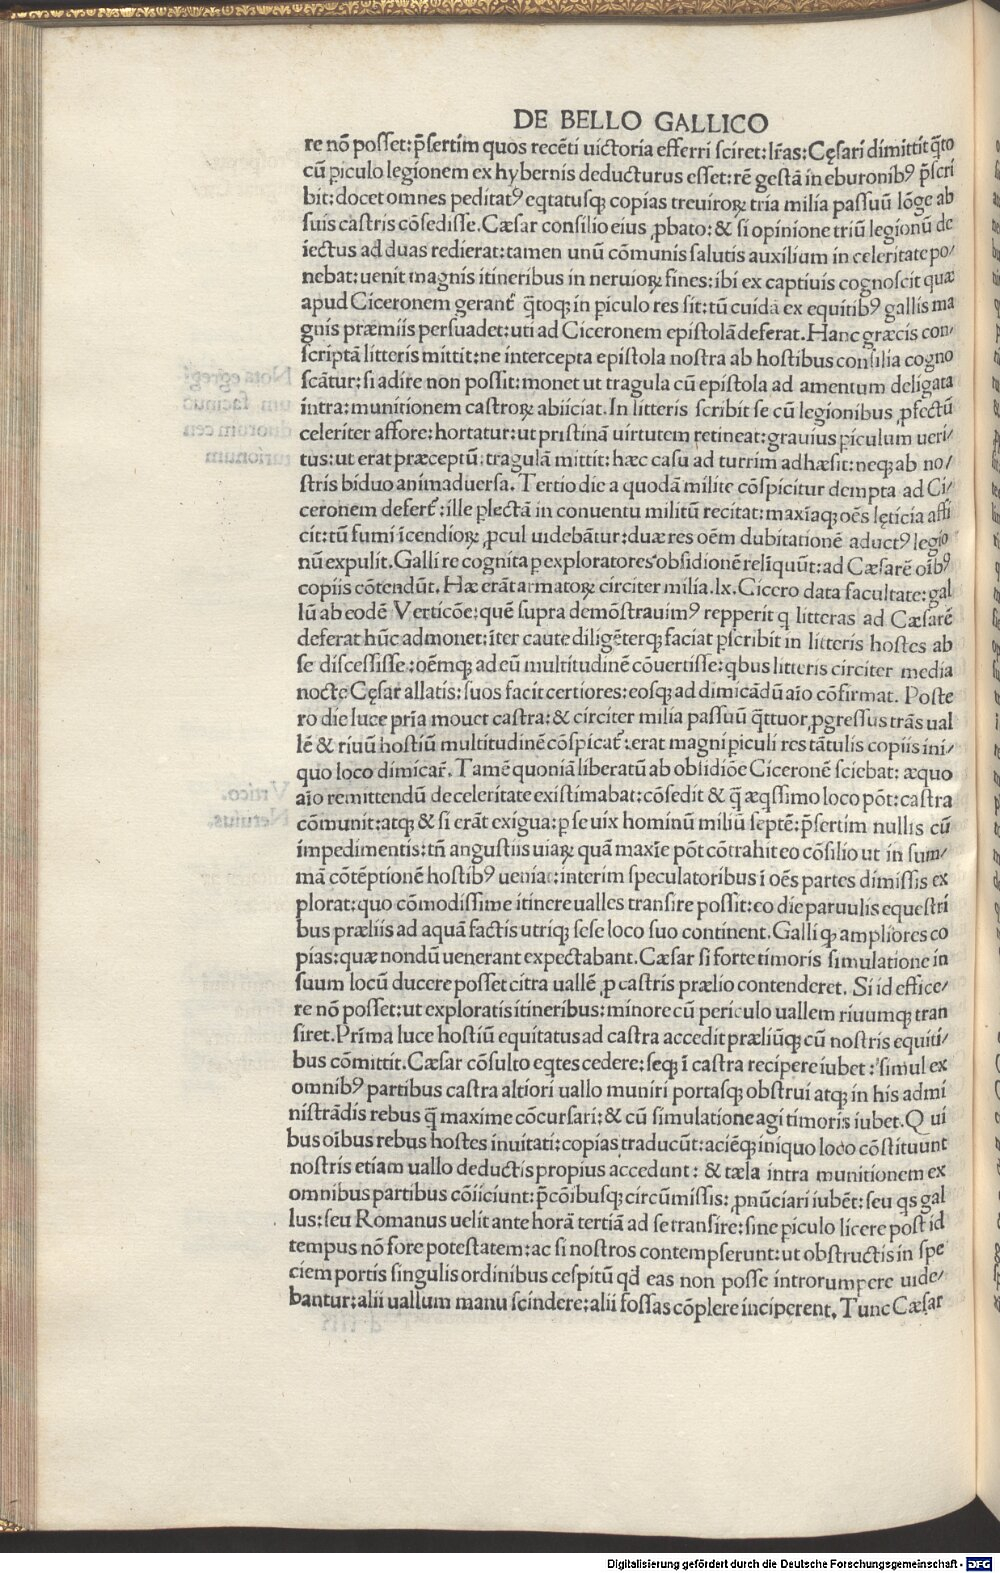 DE BELLO GALLICO
re nõ posset: p̄sertim quos recẽti uictoria efferri sciret: lr̃as: Cęsari dimittit q̃to
cũ ꝑiculo legionem ex hybernis deducturus esset: rẽ gestã in eburonibꝰ p̄scri
bit: docet omnes peditatꝰ eqtatusqꝫ copias treuiroꝝ tria milia passuũ lõge ab
suis castris cõsedisse. Cæsar consilio eius ꝓbato: & si opinione triũ legionũ de
iectus ad duas redierat: tamen unũ cõmunis salutis auxilium in celeritate po/
nebat: uenit magnis itineribus in neruioꝝ fines: ibi ex captiuis cognoscit quæ
apud Ciceronem gerant᷑ q̃toqꝫ in ꝑiculo res sit: tũ cuidã ex equitibꝰ gallis ma
gnis præmiis persuadet: uti ad Ciceronem epistolã deferat. Hanc græcis con/
scriptã litteris mittit: ne intercepta epistola nostra ab hostibus consilia cogno
scãtur: si adire non possit: monet ut tragula cũ epistola ad amentum deligata
intra: munitionem castroꝝ abiiciat. In litteris scribit se cũ legionibus ꝓfectũ
celeriter affore: hortatur: ut pristinã uirtutem retineat: grauius ꝑiculum ueri/
tus: ut erat præceptũ: tragulã mittit: hæc casu ad turrim adhæsit: neqꝫ ab no/
stris biduo animaduersa. Tertio die a quodã milite cõspicitur dempta ad Ci/
ceronem defert᷑: ille ꝑlectã in conuentu militũ recitat: maxĩaqꝫ oẽs lęticia affi
cit: tũ fumi ĩcendioꝝ ꝓcul uidebãtur: duæ res oẽm dubitationẽ aductꝰ legio
nũ expulit. Galli re cognita ꝑ exploratores obsidionẽ relĩquũt: ad Cæsarẽ oĩbꝰ
copiis cõtendũt. Hæ erãt armatoꝝ circiter milia. lx. Cicero data facultate: gal
lũ ab eodẽ Verticõe: quẽ supra demõstrauimꝰ repperit q litteras ad Cæsarẽ
deferat hũc admonet: ĩter caute diligẽterqꝫ faciat ꝑscribit in litteris hostes ab
se discessisse: oẽmqꝫ ad eũ multitudinẽ cõuertisse: qbus litteris circiter media
nocte Cęsar allatis: suos facit certiores: eosqꝫ ad dimicãdũ aĩo cõfirmat. Poste
ro die luce prĩa mouet castra: & circiter milia passuũ q̃ttuor ꝓgressus trãs ual
lẽ & riuũ hostiũ multitudinẽ cõspicat᷑: erat magni ꝑiculi res tãtulis copiis ini/
quo loco dimicar̃. Tamẽ quoniã liberatũ ab obsidiõe Ciceronẽ sciebat: æquo
aĩo remittendũ de celeritate existimabat: cõsedit & q̃ æqssimo loco põt: castra
cõmunit: atqꝫ & si erãt exigua: ꝑ se uix hominũ miliũ septẽ: p̄sertim nullis cũ
impedimentis: tñ angustiis uiaꝝ quã maxĩe põt cõtrahit eo cõsilio ut in sum/
mã cõtẽptionẽ hostibꝰ ueniat: interim speculatoribus ĩ oẽs partes dimissis ex
plorat: quo cõmodissime itinere ualles transire possit: eo die paruulis equestri
bus præliis ad aquã factis utriqꝫ sese loco suo continent. Galli qꝫ ampliores co
pias: quæ nondũ uenerant expectabant. Cæsar si forte timoris simulatione in
suum locũ ducere posset citra uallẽ ꝓ castris prælio contenderet. Si id effice/
re nõ posset: ut exploratis itineribus: minore cũ periculo uallem riuumqꝫ tran
siret. Prĩma luce hostiũ equitatus ad castra accedit præliũqꝫ cũ nostris equiti/
bus cõmittit. Cæsar cõsulto eqtes cedere: seqꝫ ĩ castra recipere iubet: simul ex
omnibꝰ partibus castra altiori uallo muniri portasqꝫ obstrui atqꝫ in his admi
nistrãdis rebus q̃ maxime cõcursari: & cũ simulatione agi timoris iubet. Q ui
bus oĩbus rebus hostes inuitati: copias traducũt: aciẽqꝫ iniquo loco cõstituunt
nostris etiam uallo deductis propius accedunt: & tæla intra munitionem ex
omnibus partibus cõiiciunt: p̄cõibusqꝫ circũmissis: ꝓnũciari iubẽt: seu qs gal
lus: seu Romanus uelit ante horã tertiã ad se transire: sine ꝑiculo licere post id
tempus nõ fore potestatem: ac si nostros contempserunt: ut obstructis in spe
ciem portis singulis ordinibus cespitũ qđ eas non posse introrumpere uide/
bantur: alii uallum manu scindere: alii fossas cõplere inciperent. Tunc Cæsar
Digitalisierung gefördert durch die Deutsche Forschungsgemeinschaft - DFG